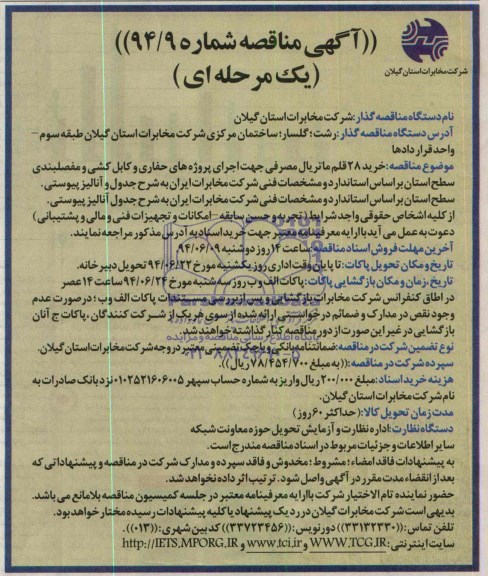 ((آگهی مناقصه شماره ۹۴/۹))
(یک مرحله ای)
شرکت مخابرات استان گیلان
نام دستگاه مناقصه گذار: شرکت مخابرات استان گیلان
آدرس دستگاه مناقصه گذار: رشت؛ گلسار؛ ساختمان مرکزی شرکت مخابرات استان گیلان طبقه سوم –
واحد قرار دادها
موضوع مناقصه: خرید ۲۸ قلم ماتریال مصرفی جهت اجرای پروژه های حفاری و کابل کشی و مفصلبندی
سطح استان بر اساس استاندارد و مشخصات فنی شرکت مخابرات ایران به شرح جدول و آنالیز پیوستی.
سطح استان بر اساس استاندارد و مشخصات فنی شرکت مخابرات ایران به شرح جدول و آنالیز پیوستی.
از کلیه اشخاص حقوقی واجد شرایط (تجربه و حسن سابقه – امکانات و تجهیزات فنی و مالی و پشتیبانی)
دعوت به عمل می آید با ارایه معرفینامه معتبر جهت خرید اسناد به آدرس مذکور مراجعه نمایند.
آخرین مهلت فروش اسناد مناقصه: ساعت ۱۴ روز دوشنبه ۹۴/۰۶/۰۹.
تاریخ و مکان تحویل پاکات: تا پایان وقت اداری روز یکشنبه مورخ ۹۴/۰۶/۲۲ تحویل دبیرخانه.
تاریخ، زمان و مکان بازگشایی پاکات: پاکات الف و ب روز سه شنبه مورخ ۹۴/۰۶/۲۴ ساعت ۱۴ عصر
در اطاق کنفرانس شرکت مخابرات بازگشایی و پس از بررسی مستندات پاکات الف و ب؛ در صورت عدم
وجود نقص در مدارک و ضمائم درخواستی ارائه شده از سوی هر یک از شرکت کنندگان، پاکات ج آنان
بازگشایی در غیر این صورت از دور مناقصه کنار گذاشته خواهند شد.
نوع تضمین شرکت در مناقصه: ضمانتنامه بانکی و یا چک تضمینی معتبر در وجه شرکت مخابرات استان گیلان.
سپرده شرکت در مناقصه: ((به مبلغ ۷۸/۴۵۴/۷۰۰ ریال)).
هزینه خرید اسناد: مبلغ ۲۰۰/۰۰۰ ریال واریز به شماره حساب سپهر ۰۱۰۲۵۲۱۶۰۶۰۰۵ نزد بانک صادرات به
نام شرکت مخابرات استان گیلان.
مدت زمان تحویل کالا: (حداکثر ۶۰ روز)
دستگاه نظارت: اداره نظارت و آزمایش تحویل حوزه معاونت شبکه
سایر اطلاعات و جزئیات مربوط در اسناد مناقصه مندرج است.
به پیشنهادات فاقد امضاء؛ مشروط؛ مخدوش و فاقد سپرده و مدارک شرکت در مناقصه و پیشنهاداتی که
بعد از انقضاء مدت مقرر در آگهی واصل شود. ترتیب اثر داده نخواهد شد.
حضور نماینده تام الاختیار شرکت با ارایه معرفینامه معتبر در جلسه کمیسیون مناقصه بلامانع می باشد.
بدیهی است شرکت مخابرات گیلان در رد یک پیشنهاد یا کلیه پیشنهادات رسیده مختار خواهد بود.
تلفن تماس: ((۳۳۱۳۲۳۳۰)) دورنویس: ((۳۳۷۲۳۴۵۶)) کد بین شهری: ((۰۱۳)).
سایت اینترنتی: WWW.TCG.IR و www.tci.ir و http://IETS.MPORG.IR
پایگاه اطلاع رسانی مناقصه و مزایده